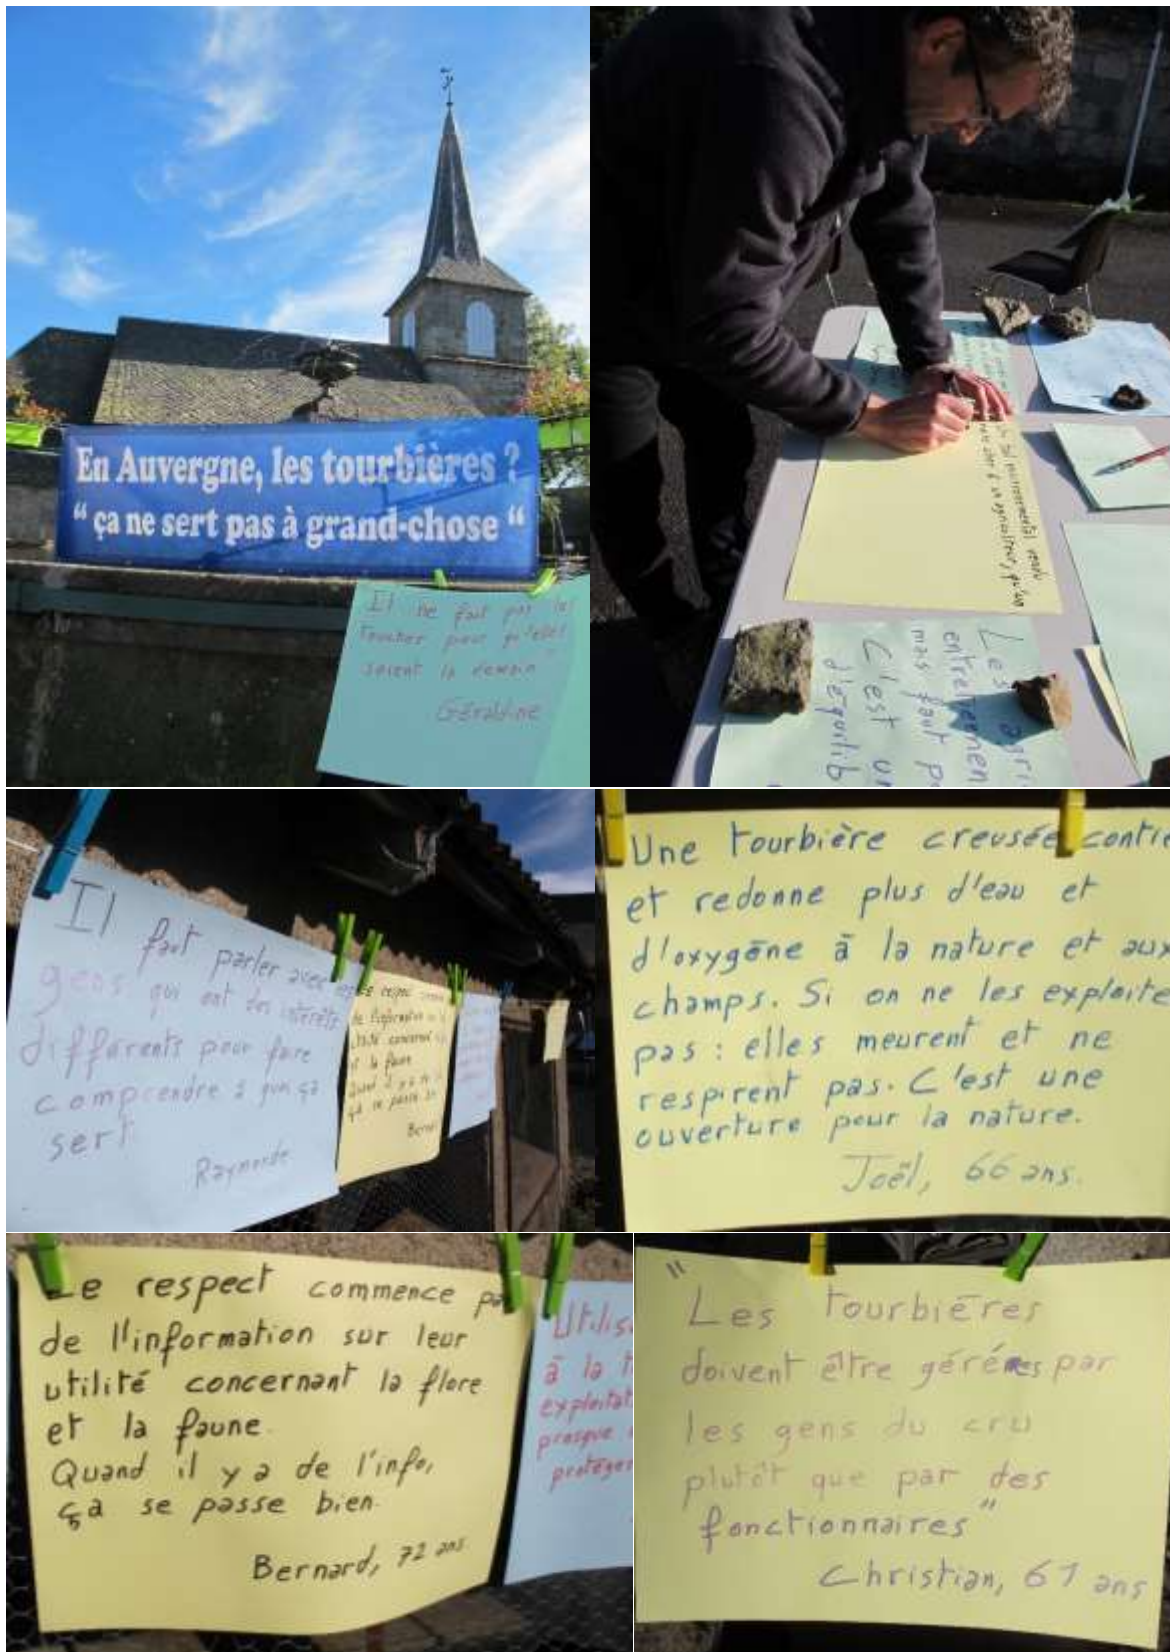 En Auvergne, les tourbières ?
“ ça ne sert pas à grand-chose “
Il ne faut pas les
toucher pour qu'elles
soient là demain"
Géraldine
environnemental
Les agri
entretiennen
mais faut p
C'est un
d'équilib
Il faut parler avec
gens qui ont des intérêts
différents pour faire
comprendre à quoi ça
sert
Raymonde
Bernar
Une tourbière creusée contie
et redonne plus d'eau et
d'oxygène à la nature et aux
champs. Si on ne les exploite
pas : elles meurent et ne
respirent pas. C'est une
ouverture pour la nature.
Joël, 66 ans.
Le respect commence pa
de l'information sur leur
utilité concernant la flore
et la faune.
Quand il y a de l'info,
ça se passe bien.
Bernard, 72 ans
Utilis
à la t
exploitat
presque
protéger
"Les tourbières
doivent être gérées par
les gens du cru
plutôt que par des
fonctionnaires"
Christian, 61 ans